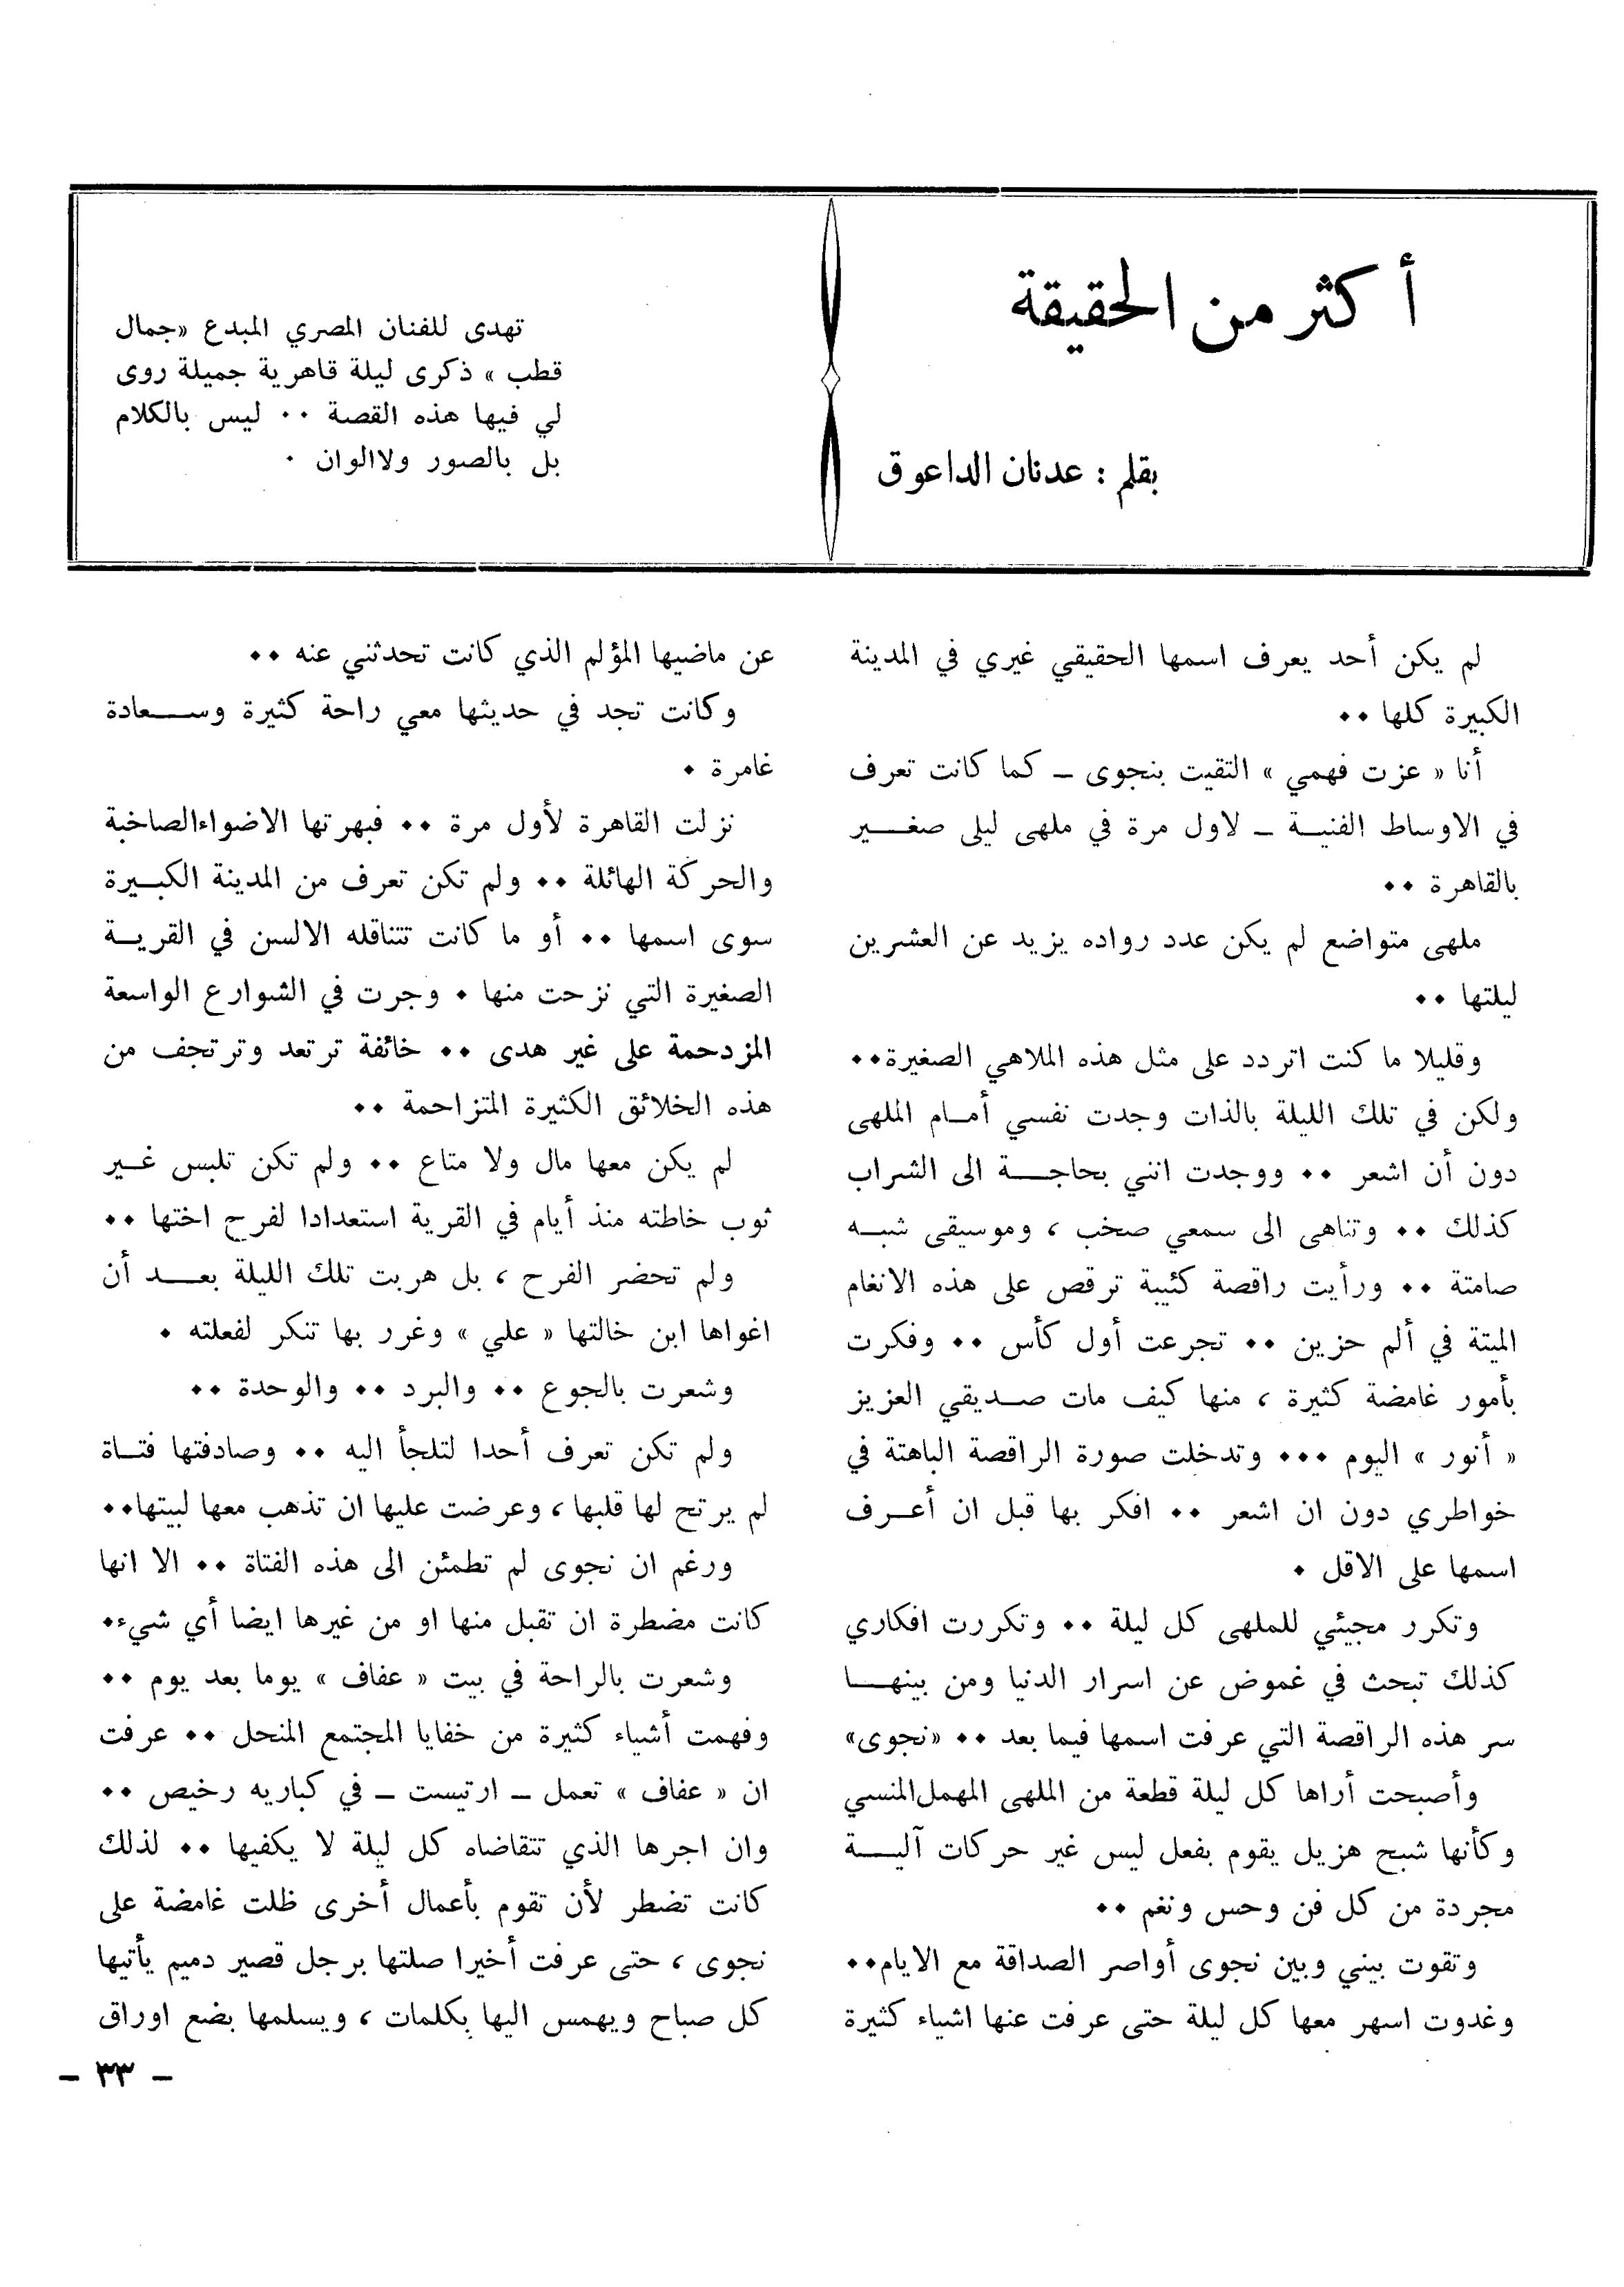 أكثر من الحقيقة
بقلم : عدنان الداعوق
تهدى للفنان المصري المبدع «جمال
قطب » ذكرى ليلة قاهرية جميلة روى
لي فيها هذه القصة ٠٠ ليس بالكلام
بل بالصور ولاالوان ٠
لم يكن أحد يعرف اسمها الحقيقي غيري في المدينة
الكبيرة كلها ٠٠
أنا « عزت فهمي » التقيت بنجوى ــ كما كانت تعرف
في الاوساط الفنيــة ــ لاول مرة في ملهى ليلى صغـــير
بالقاهرة ٠٠
ملهى متواضع لم يكن عدد رواده يزيد عن العشرين
ليلتها ٠٠
وقليلا ما كنت اتردد على مثل هذه الملاهي الصغيرة٠٠
ولكن في تلك الليلة بالذات وجدت نفسي أمــام الملهى
دون أن اشعر ٠٠ ووجدت انني بحاجـــة الى الشراب
كذلك ٠٠ وتناهى الى سمعي صخب ، وموسيقى شبــه
صامتة ٠٠ ورأيت راقصة كئيبة ترقص على هذه الانغام
الميتة في ألم حزين ٠٠ تجرعت أول كأس ٠٠ وفكرت
بأمور غامضة كثيرة ، منها كيف مات صــديقي العزيز
« أنور » اليوم ٠٠٠ وتدخلت صورة الراقصة الباهتة في
خواطري دون ان اشعر ٠٠ افكر بها قبل ان أعــرف
اسمها على الاقل ٠
وتكرر مجيئي للملهى كل ليلة ٠٠ وتكررت افكاري
كذلك تبحث في غموض عن اسرار الدنيا ومن بينهـــا
سر هذه الراقصة التي عرفت اسمها فيما بعد ٠٠ «نجوى»
وأصبحت أراها كل ليلة قطعة من الملهى المهمل المنسي
وكأنها شبح هزيل يقوم بفعل ليس غير حركات آليـــة
مجردة من كل فن وحس ونغم ٠٠
وتقوت بيني وبين نجوى أواصر الصداقة مع الايام٠٠
وغدوت اسهر معها كل ليلة حتى عرفت عنها اشياء كثيرة
عن ماضيها المؤلم الذي كانت تحدثني عنه ٠٠
وكانت تجد في حديثها معي راحة كثيرة وســـعادة
غامرة ٠
نزلت القاهرة لأول مرة ٠٠ فبهرتها الاضواءالصاخبة
والحركة الهائلة ٠٠ ولم تكن تعرف من المدينة الكبــيرة
سوى اسمها ٠٠ أو ما كانت تتناقله الالسن في القريــة
الصغيرة التي نزحت منها ٠ وجرت في الشوارع الواسعة
المزدحمة على غير هدى ٠٠ خائفة ترتعد وترتجف من
هذه الخلائق الكثيرة المتزاحمة ٠٠
لم يكن معها مال ولا متاع ٠٠ ولم تكن تلبس غــير
ثوب خاطته منذ أيام في القرية استعدادا لفرح اختها ٠٠
ولم تحضر الفرح ، بل هربت تلك الليلة بعـــد أن
اغواها ابن خالتها « علي » وغرر بها تنكر لفعلته ٠
وشعرت بالجوع ٠٠ والبرد ٠٠ والوحدة ٠٠
ولم تكن تعرف أحدا لتلجأ اليه ٠٠ وصادفتها فتــاة
لم يرتح لها قلبها ، وعرضت عليها ان تذهب معها لبيتها٠٠
ورغم ان نجوى لم تطمئن الى هذه الفتاة ٠٠ الا انها
كانت مضطرة ان تقبل منها او من غيرها ايضا أي شيء٠
وشعرت بالراحة في بيت « عفاف » يوما بعد يوم ٠٠
وفهمت أشياء كثيرة من خفايا المجتمع المنحل ٠٠ عرفت
ان « عفاف » تعمل ــ ارتيست ــ في كباريه رخيص ٠٠
وان اجرها الذي تتقاضاه كل ليلة لا يكفيها ٠٠ لذلك
كانت تضطر لأن تقوم بأعمال أخرى ظلت غامضة على
نجوى ، حتى عرفت أخيرا صلتها برجل قصير دميم يأتيها
كل صباح ويهمس اليها بكلمات ، ويسلمها بضع اوراق
ــ ٣٣ ــ